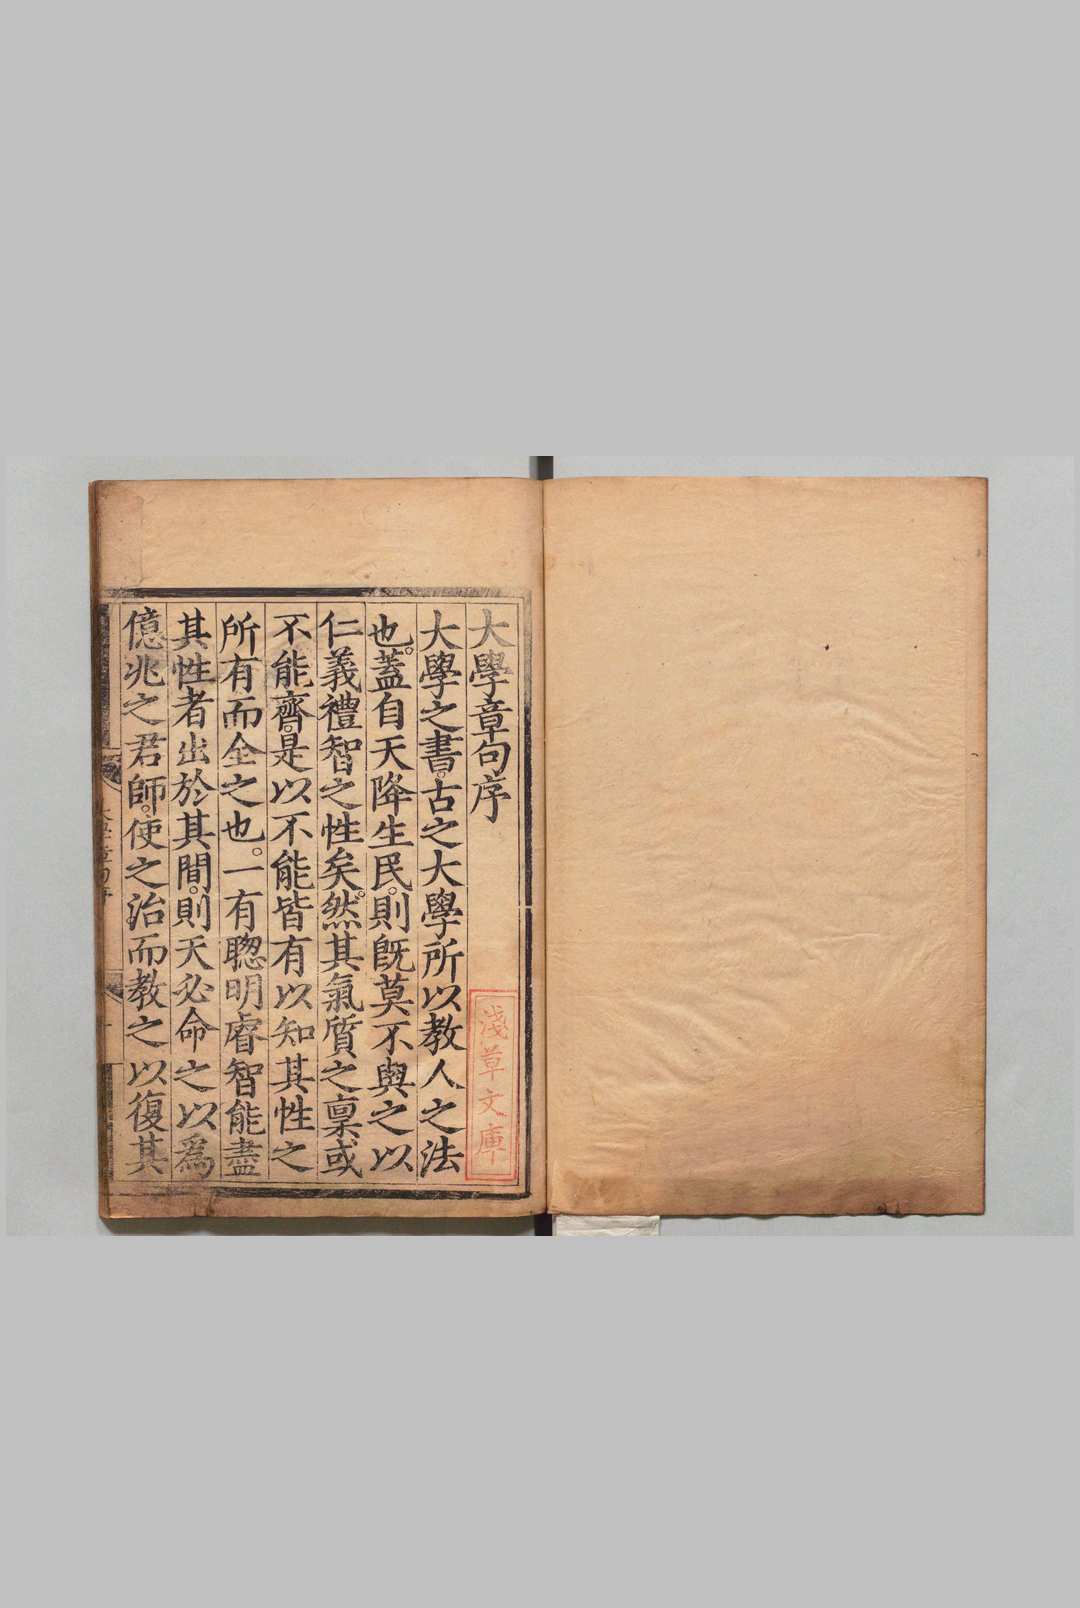 大學章句序
大學之書。古之大學所以教人之法
也。蓋自天降生民。則既莫不與之以
仁義禮智之性矣。然其氣質之稟或
不能齊。是以不能皆有以知其性之
所有而全之也。一有聰明睿智能盡
其性者出於其間。則天必命之以爲
億兆之君師。使之治而教之以復其
淺草文庫